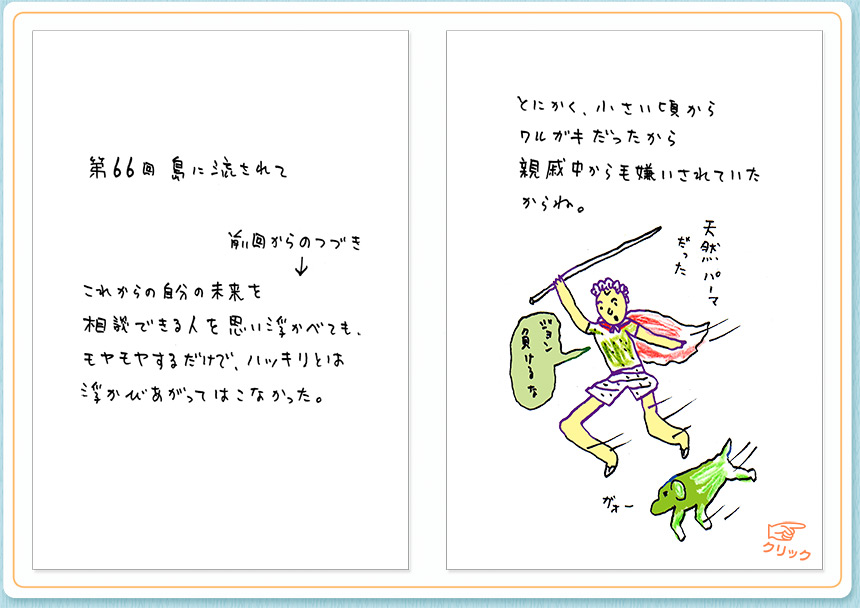 第66回 島に流されて
前回からのつづき
↓
これからの自分の未来を
相談できる人を思い浮かべても、
モヤモヤするだけで、ハッキリとは
浮かびあがってはこなかった。
とにかく、小さい頃から
ワルガキだったから
親戚中から毛嫌いされていた
からね。
天然パーマ
だった
ジョン
負けるな
ガォー
クリック